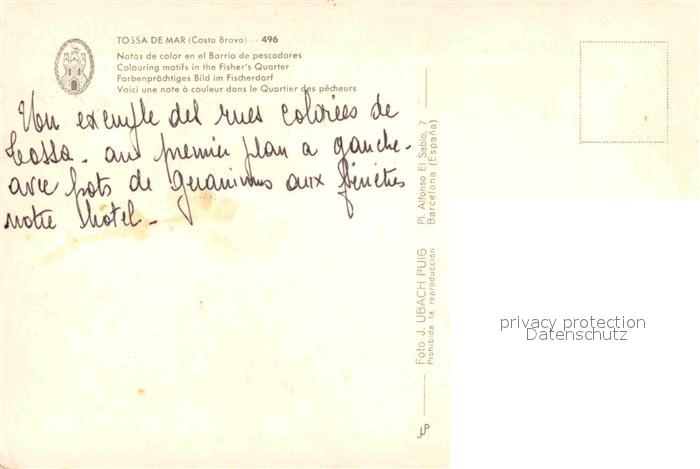 TOSSA DE MAR (Costa Brava) — 496
Notas de color en el Barrio de pescadores
Colouring motifs in the Fisher's Quarter
Farbenprächtiges Bild im Fischerdorf
Voici une note à couleur dans le Quartier des pêcheurs
Un exemple del rues colorées de
Tossa - au premier plan a gauche -
avec pots de geraniums aux fenêtres
notre hotel -
Pl. Alfonso El Sabio, 7
Barcelona (España)
Foto J. UBACH PUIG
Prohibida la reproducción
JUP
privacy protection
Datenschutz